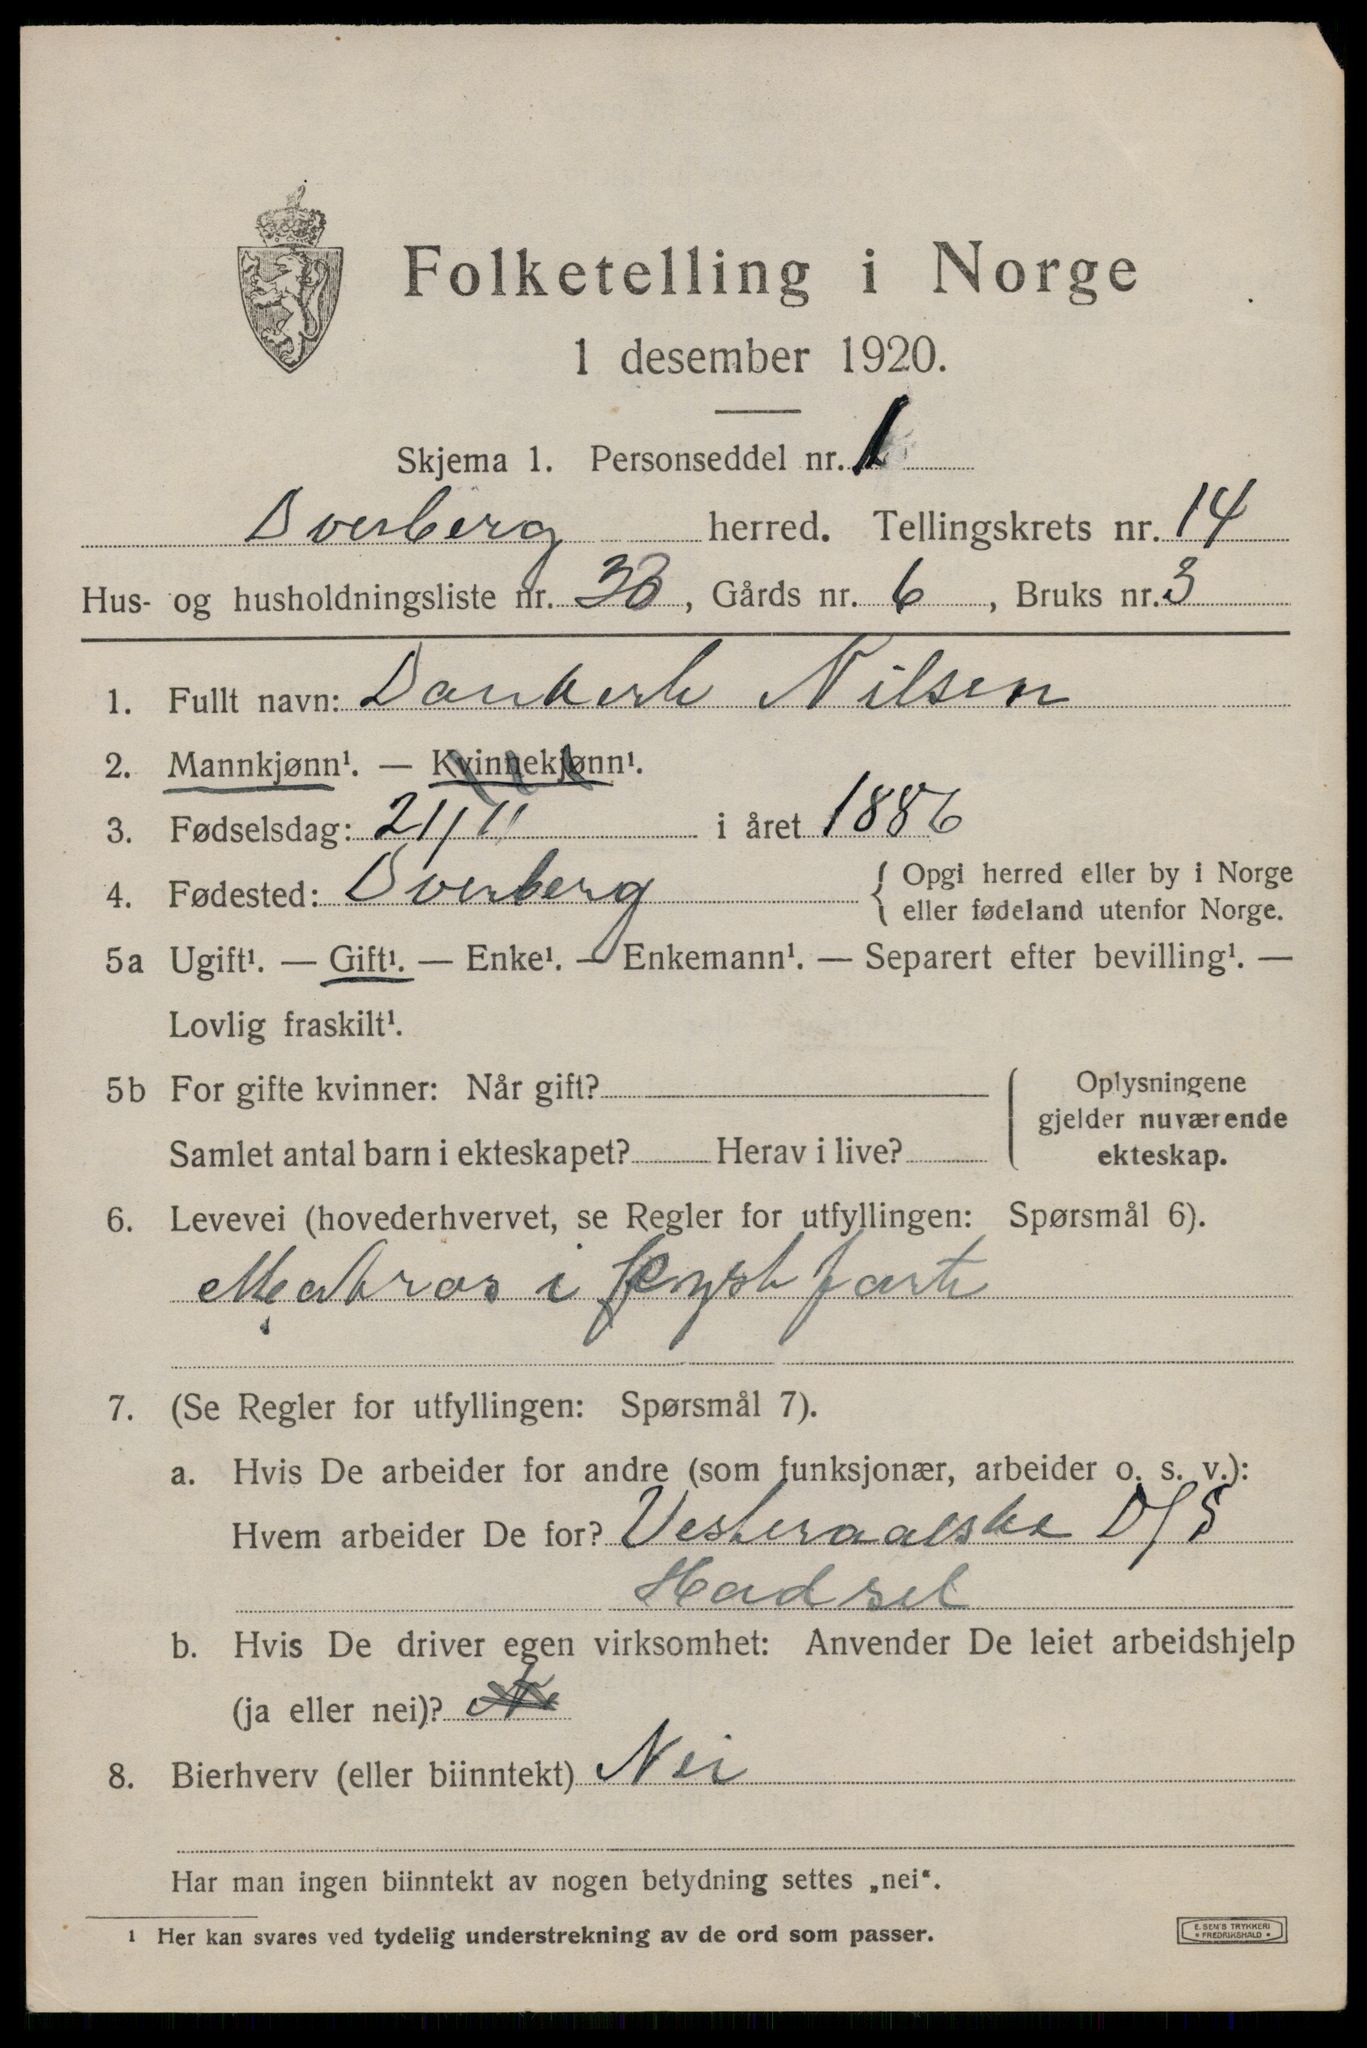 Folketelling i Norge
1 desember 1920.
Skjema 1. Personseddel nr. 1
Dverberg herred. Tellingskrets nr. 14
Hus- og husholdningsliste nr. 38, Gårds nr. 6, Bruks nr. 3
1. Fullt navn: Dankert Nilsen
2. Mannkjønn¹. — Kvinnekjønn¹.
3. Fødselsdag: 21/11 i året 1886
4. Fødested: Dverberg { Opgi herred eller by i Norge
eller fødeland utenfor Norge.
5a Ugift¹. — Gift¹. — Enke¹. — Enkemann¹. — Separert efter bevilling¹. —
Lovlig fraskilt¹.
5b For gifte kvinner: Når gift?
Samlet antal barn i ekteskapet? Herav i live?
Oplysningene
gjelder nuværende
ekteskap.
6. Levevei (hovederhvervet, se Regler for utfyllingen: Spørsmål 6).
Matros i kystfart
7. (Se Regler for utfyllingen: Spørsmål 7).
a. Hvis De arbeider for andre (som funksjonær, arbeider o. s. v.):
Hvem arbeider De for? Vesteraalske D/S
Hadsel
b. Hvis De driver egen virksomhet: Anvender De leiet arbeidshjelp
(ja eller nei)?
8. Bierhverv (eller biinntekt) Nei
Har man ingen biinntekt av nogen betydning settes „nei“.
¹ Her kan svares ved tydelig understrekning av de ord som passer.
E. SEM'S TRYKKERI
FREDRIKSHALD